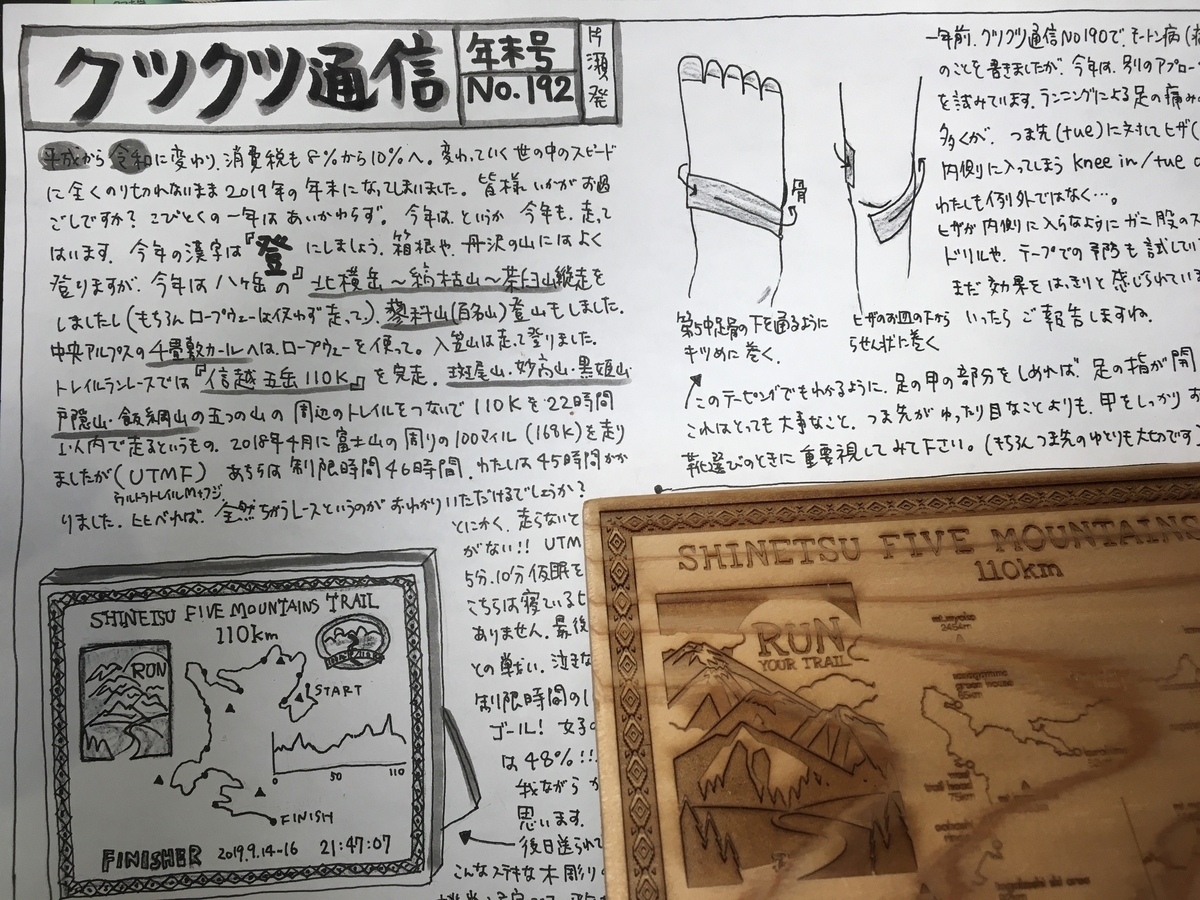 クツクツ通信
年末号
No.192
片瀬発
平成から令和に変わり、消費税も8%から10%へ。変わっていく世の中のスピード
に全くのり切れないまま2019年の年末になってしまいました。皆様いかがお過
ごしですか？こびとくの一年はあいかわらず。今年は、というか 今年も、走って
はいます。今年の漢字は『登』にしましょう。箱根や、丹沢の山にはよく
登りますが、今年は八ヶ岳の『北横岳〜縞枯山〜茶臼山縦走を
しましたし(もちろんロープウェーは使わず走って♪)、蓼科山(百名山)登山もしました。
中央アルプスの千畳敷カールへは、ロープウェーを使って。入笠山は走って登りました。
トレイルランレースでは『信越五岳110K』を完走。斑尾山・妙高山・黒姫山・
戸隠山・飯綱山の五つの山の周辺のトレイルをつないで110Kを22時間
以内で走るというもの。2018年4月に富士山の周りの100マイル(168K)を走り
ましたが(UTMF)あちらは制限時間46時間、わたしは45時間かか
ウルトラトレイルMtフジ
りました。ヒヒべれば、全然ちがうレースというのがおわかりいただけるでしょうか？
とにかく、走らないと
がない!! UTM
5分、10分仮眠を
こちらは寝ているヒ
ありません。最後
との戦い。泣きな
制限時間の
ゴール！ 女子
は48%!!
我ながら
思います。
後日送られて
こんなステキな木彫り
SHINETSU FIVE MOUNTAINS TRAIL
110km
RUN
START
0 50 110
FINISH
FINISHER 2019.9.14-16 21:47:07
骨
第5中足骨の下を通るように
キツめに巻く。
ヒザのお皿の下から
らせん状に巻く
一年前、クツクツ通信No190で、モートン病(
のことを書きましたが、今年は、別のアプロー
を試みています。ランニングによる足の痛み
多くが、つま先(tue)に対してヒザ(
内側に入ってしまう knee in/tue o
わたしも例外ではなく…。
ヒザが内側に入らなようにガニ股のス
ドリルや、テープでの予防も試してい
まだ効果をはっきりと感じられてい
いったらご報告しますね。
このテーピングでもわかるように、足の甲の部分をしめれば、足の指が開
これはとっても大事なこと。つま先がゆったり目なことよりも、甲をしっかりお
靴選びのときに重要視してみて下さい。(もちろんつま先のゆとりも大切です
SHINETSU FIVE MOUNTAINS
110km
RUN
YOUR TRAIL
mt.myoko
2454m